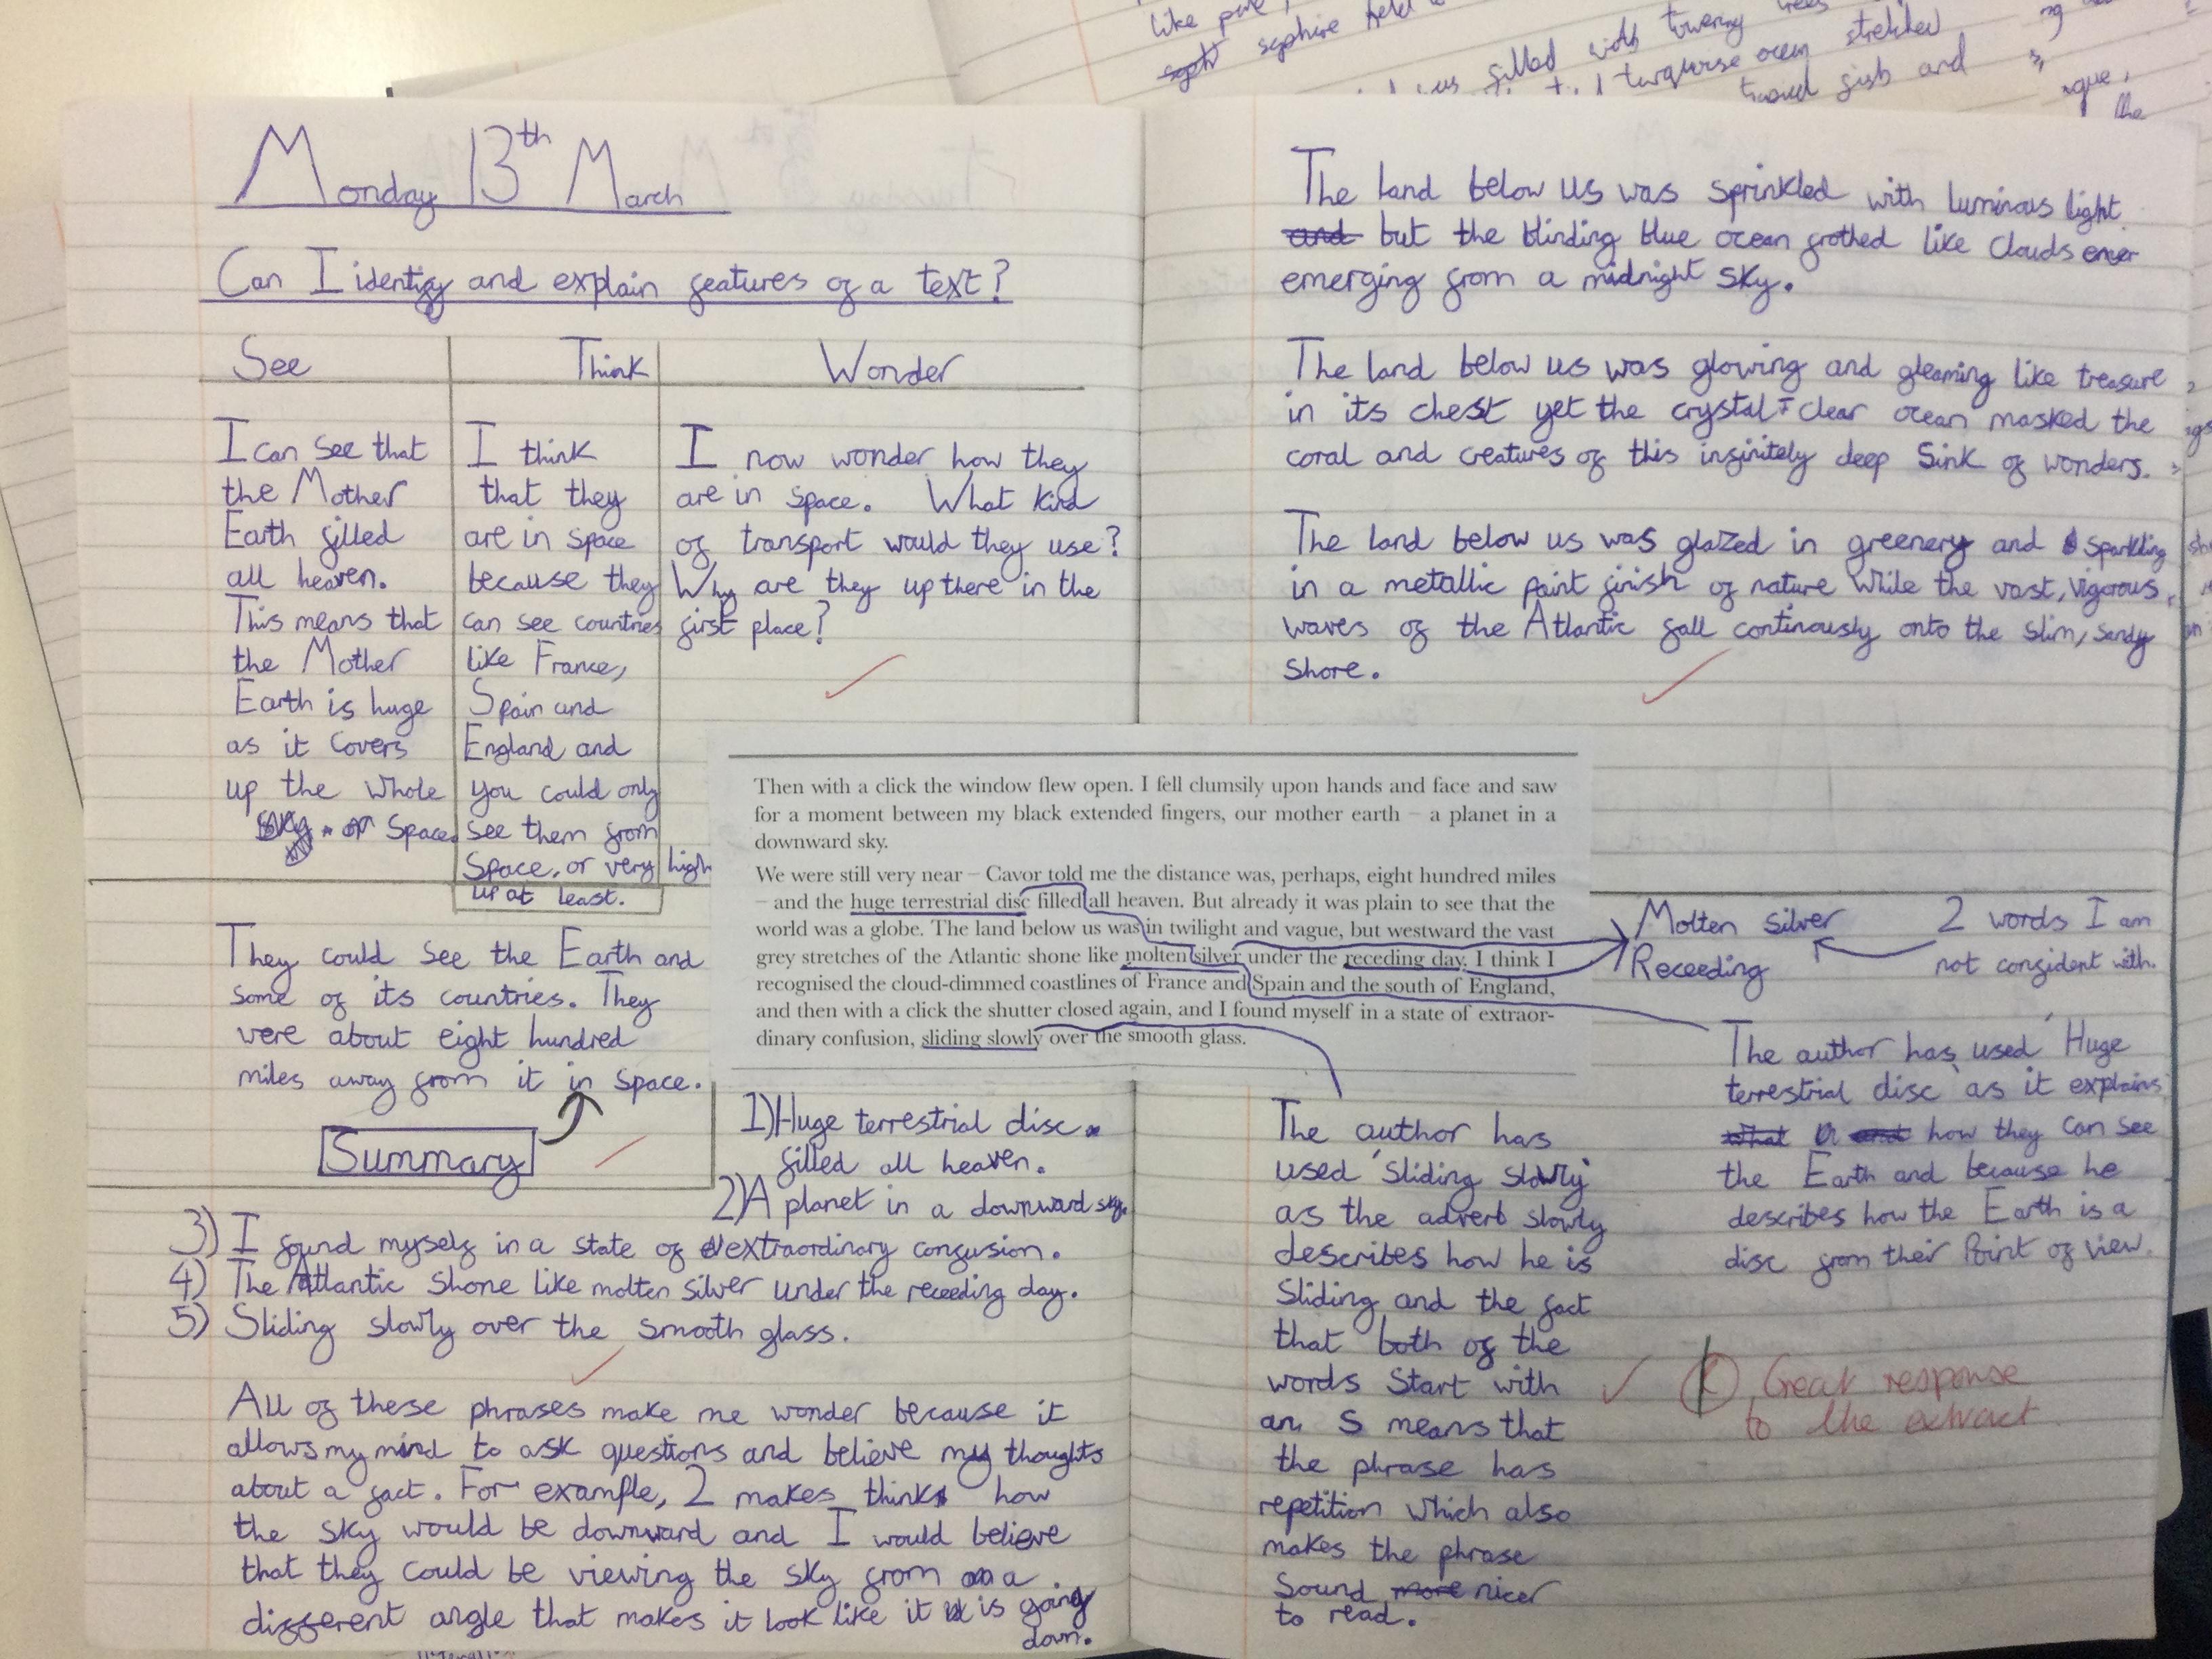 Monday 13th March
Can I identify and explain features of a text?
See
I can see that
the Mother
Earth filled
all heaven.
This means that
the Mother
Earth is huge
as it covers
up the whole
sky or Space.
Think
I think
that they
are in space
because they
can see countries
like France,
Spain and
England and
you could only
see them from
Space, or very high
up at least.
Wonder
I now wonder how they
are in space. What kind
of transport would they use?
Why are they up there in the
first place?
They could see the Earth and
some of its countries. They
were about eight hundred
miles away from it in space.
Summary
Then with a click the window flew open. I fell clumsily upon hands and face and saw
for a moment between my black extended fingers, our mother earth – a planet in a
downward sky.
We were still very near – Cavor told me the distance was, perhaps, eight hundred miles
– and the huge terrestrial disc filled all heaven. But already it was plain to see that the
world was a globe. The land below us was in twilight and vague, but westward the vast
grey stretches of the Atlantic shone like molten silver under the receding day. I think I
recognised the cloud-dimmed coastlines of France and Spain and the south of England,
and then with a click the shutter closed again, and I found myself in a state of extraor-
dinary confusion, sliding slowly over the smooth glass.
1) Huge terrestrial disc
filled all heaven.
2) A planet in a downward sky.
3) I found myself in a state of extraordinary confusion.
4) The Atlantic shone like molten silver under the receeding day.
5) Sliding slowly over the smooth glass.
All of these phrases make me wonder because it
allows my mind to ask questions and believe my thoughts
about a fact. For example, 2 makes think how
the sky would be downward and I would believe
that they could be viewing the sky from a
different angle that makes it look like it is going
down.
The land below us was sprinkled with luminous light
and but the blinding blue ocean frothed like clouds emer
emerging from a midnight sky.
The land below us was glowing and gleaming like treasure
in its chest yet the crystal-clear ocean masked the
coral and creatures of this infinitely deep Sink of wonders.
The land below us was glazed in greenery and sparkling
in a metallic paint finish of nature while the vast, vigorous
waves of the Atlantic fall continously onto the slim, sandy
shore.
Molten silver
Receeding
2 words I am
not confident with.
The author has used 'Huge
terrestrial disc' as it explains
what and how they can see
the Earth and because he
describes how the Earth is a
disc from their Point of view.
The author has
used 'sliding slowly'
as the adverb slowly
describes how he is
sliding and the fact
that both of the
words start with
an S means that
the phrase has
repetition which also
makes the phrase
sound more nicer
to read.
Great response
to the extract
like
saphire held
filled with towering trees
turquoise ocean stretched
fish and
the